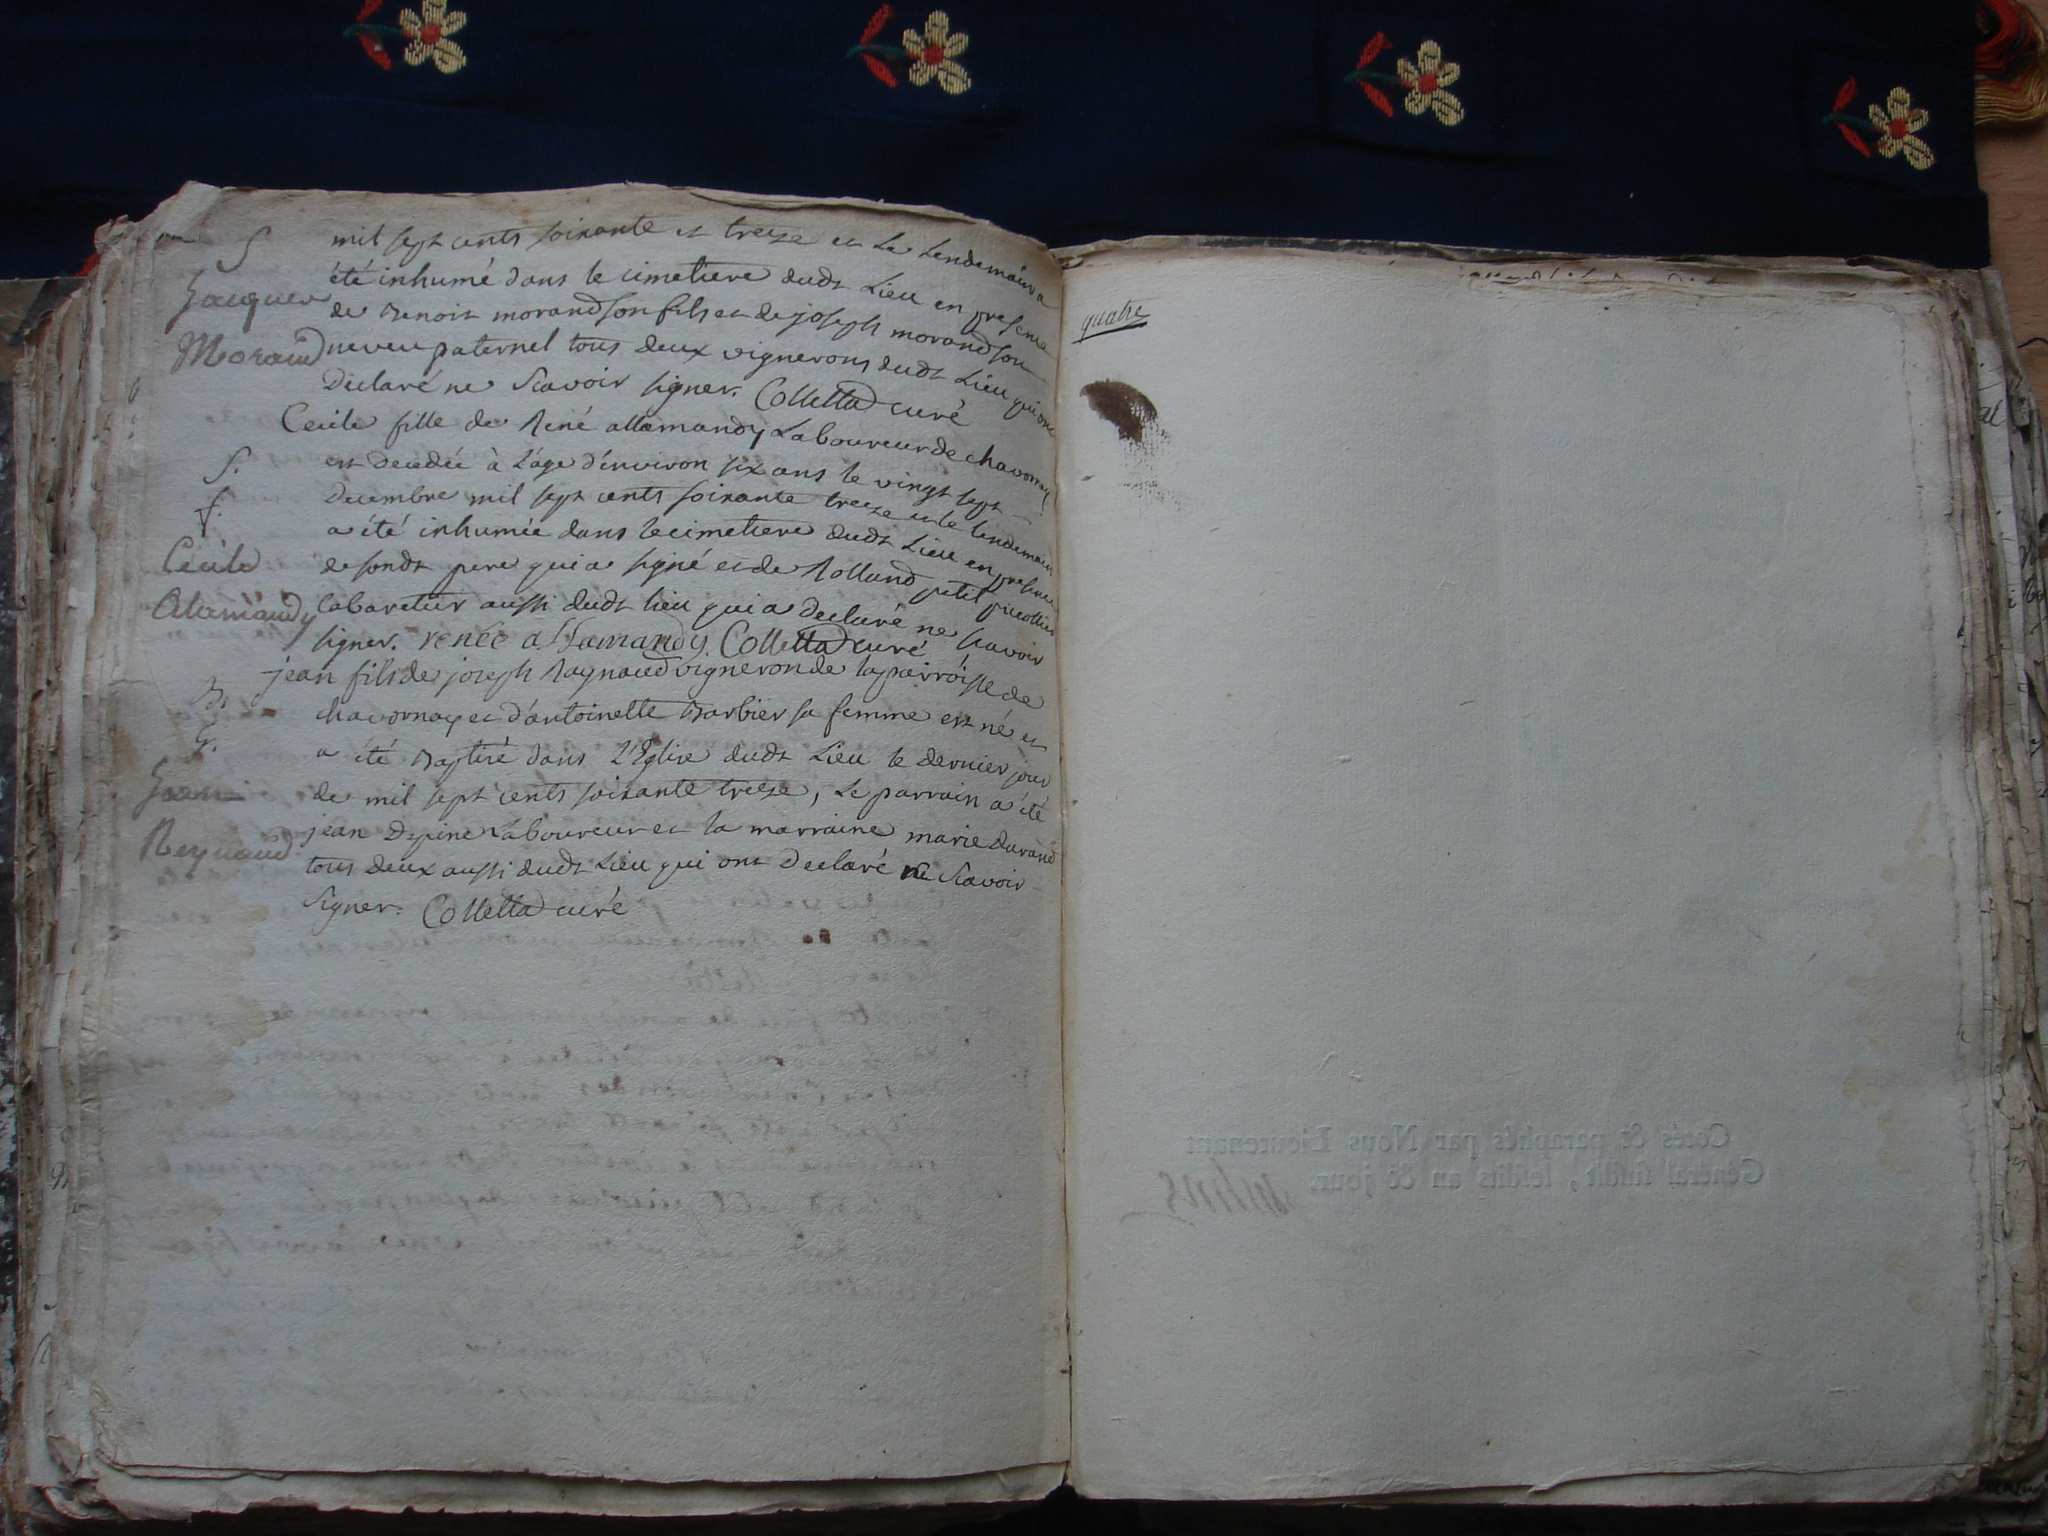 S
Jacques
Moraud
mil sept cents soixante et treize et le Lendemain a
été inhumé dans le cimetiere dudt Lieu en presence
de Benoit morand son fils et de joseph morand son
neveu paternel tous deux vignerons dudt Lieu qui ont
Declaré ne Scavoir signer. Colletta curé
S.
f.
Cécile
Alamandy
Cecile fille de René allamandy Laboureur de chavornay
est decedée à l'age d'environ six ans le vingt sept
decembre mil sept cents soixante treize et le lendemain
a été inhumée dans le cimetiere dudt Lieu en presence
de sondt pere qui a signé et de Rolland petit
Cabaretier aussi dudt lieu qui a declaré ne scavoir
signer. renée allamandy. Colletta curé
B.
G.
Jean
Reynaud
jean fils de joseph Raynaud vigneron de la parroisse de
chavornay et d'antoinette Barbier sa femme est né et
a été Baptisé dans L'Eglise dudt Lieu le dernier jour
de mil sept cents soixante treize, Le parrain a été
jean Dépine Laboureur et la marraine marie durand
tous deux aussi dudt Lieu qui ont Declaré ne Scavoir
Signer. Colletta curé
quatre
Cotés & paraphés par Nous Lieutenant
Général susdit, lesdits an & jour.